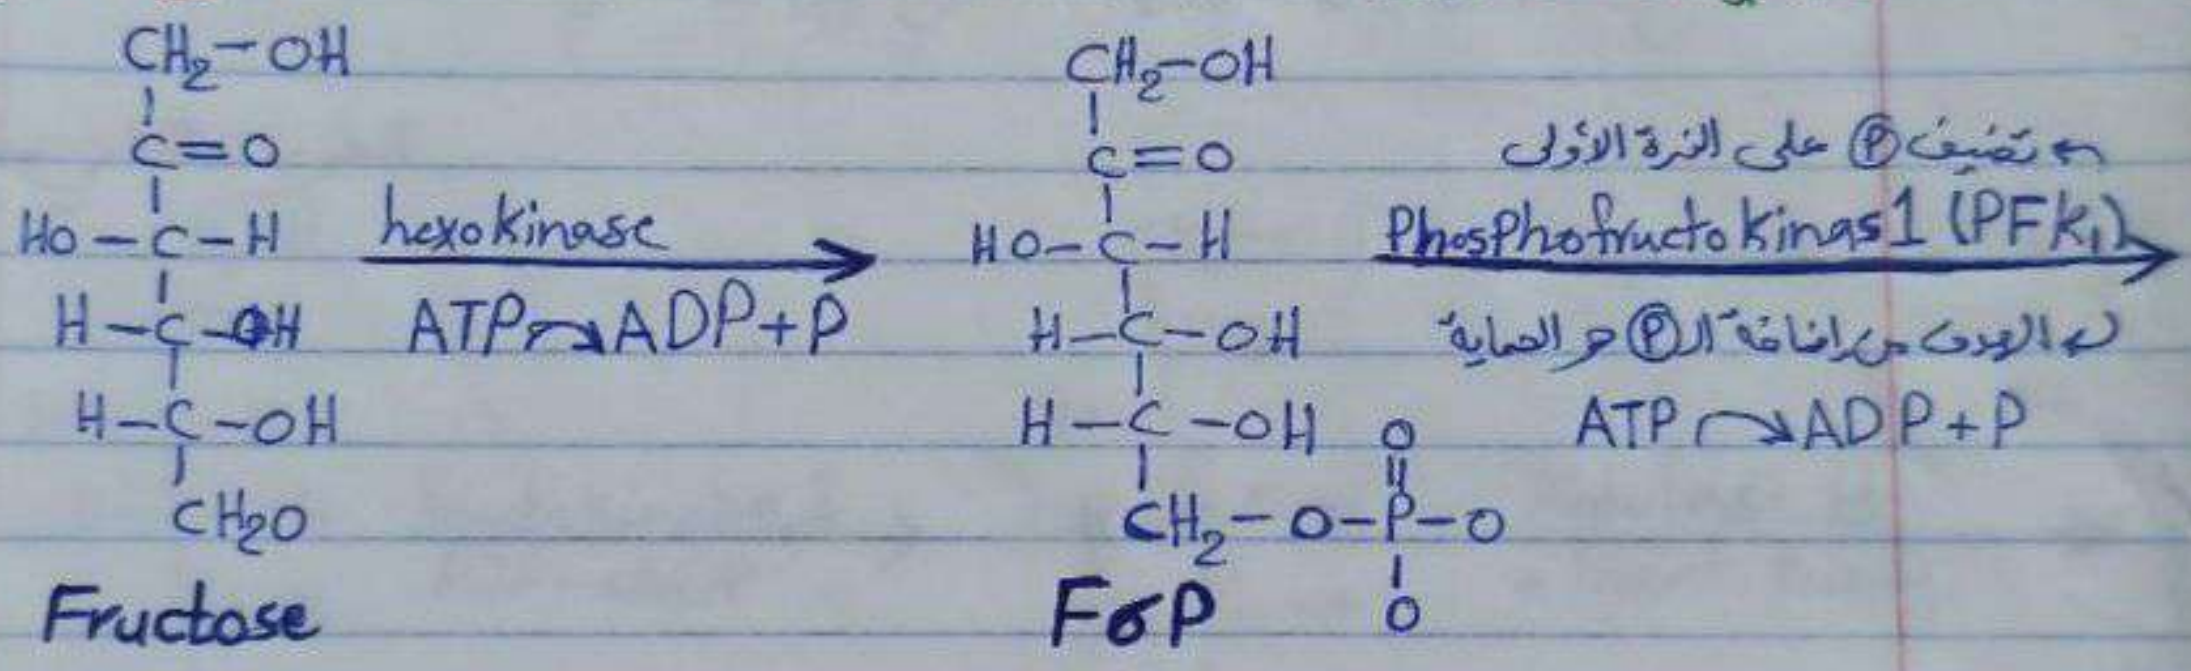 CH2-OH
C=O
HO-C-H
H-C-OH
H-C-OH
CH2O
Fructose
hexokinase
ATP ADP+P
CH2-OH
C=O
HO-C-H
H-C-OH
H-C-OH
CH2-O-P-O
O
O
F6P
← تضيف Ⓟ على الذرة الأولى
Phosphofructokinas1 (PFK1)
الهدف من إضافة ال Ⓟ هو الحماية
ATP ADP+P